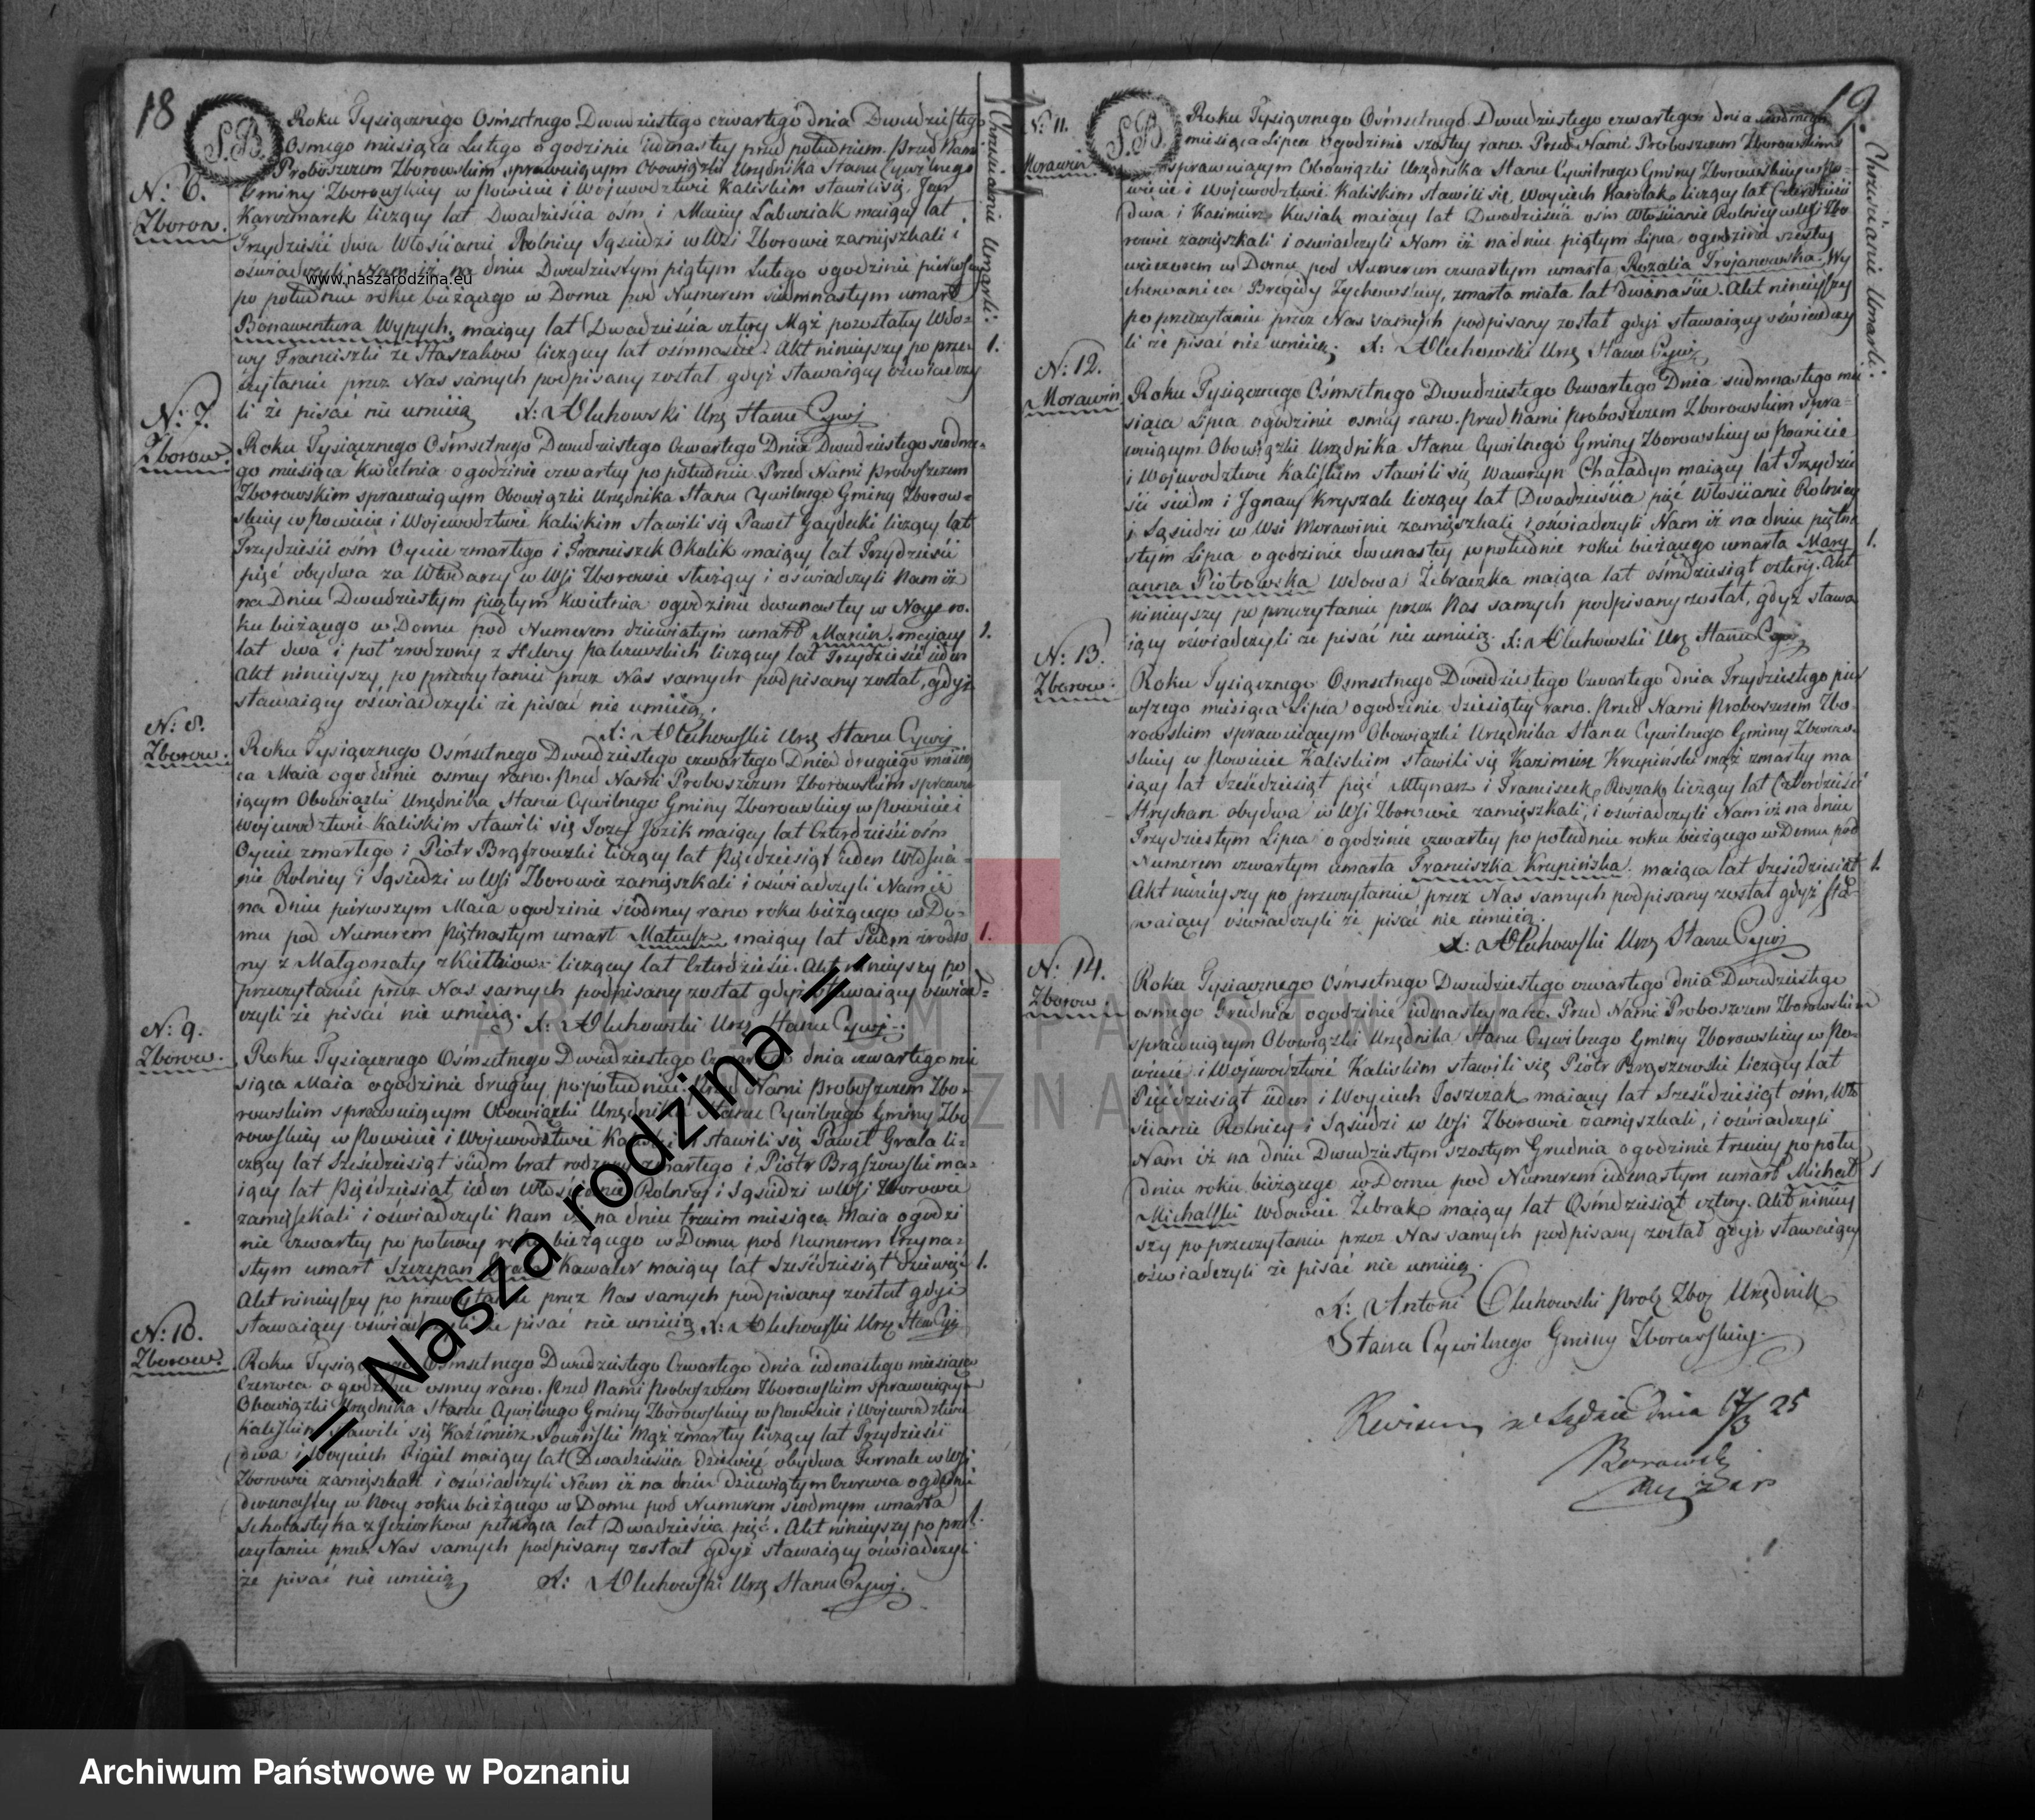 18
S.B.
Roku Tysiącznego Osmsetnego Dwudziestego czwartego dnia Dwudziestego
Osmego miesiąca Lutego o godzinie iedenastey przed południem. Przed Nami
Proboszczem Zborowskim sprawuiącym Obowiązki Urzędnika Stanu Cywilnego
N: 6.
Zborow.
Gminy Zborowskiey w Powiecie i Woiewodztwie Kaliskim stawili się, Jan
Karczmarek liczący lat Dwadzieścia ośm i Maciey Łabuziak maiący lat
Trzydzieści dwa Włościanie Rolnicy Sąsiedzi w Wsi Zborowie zamięszkali i
oświadczyli Nam iż na dniu Dwudziestym piątym Lutego o godzinie pierwszey
www.naszarodzina.eu
po południu roku bieżącego w Domu pod Numerem siedmnastym umarł
Bonawentura Wypych, maiący lat Dwadzieścia cztery Mąż pozostałey Wdo-
wy Franciszki ze Staszaków liczący lat ośmnaście. Akt ninieyszy po prze- 1.
czytaniu przez Nas samych podpisany został gdyż stawaiący oświadczy
li że pisać nie umieią X: A Cluchowski Urz Stanu Cywi
Chrześcianie Umarli:
N: 7.
Zborow.
Roku Tysiącznego Ośmsetnego Dwudziestego Czwartego Dnia Dwudziestego siodme-
go miesiąca Kwietnia o godzinie czwartey po południu Przed Nami Proboszczem
Zborowskim sprawuiącym Obowiązki Urzędnika Stanu Cywilnego Gminy Zborow-
skiey w Powiecie i Woiewodztwie Kaliskim stawili się Paweł Gaydecki liczący lat
Trzydzieści ośm Oyciec zmartego i Franciszek Okolik maiący lat Trzydzieści
pięć obydwa za Włodarzy w Wsi Zborowie służący i oświadczyli Nam iż
na Dniu Dwudziestym piątym Kwietnia o godzinie dwunastey w Nocy ro-
ku bieżącego w Domu pod Numerem dziewiątym umarł Marcin, maiący 1.
lat dwa i poł zrodzony z Heleny liczący lat Trzydzieście ieden
Akt ninieyszy po przeczytaniu przez Nas samych podpisany został, gdyż
stawaiący oświadczyli że pisać nie umieią.
X: A Cluchowski Urz Stanu Cywi
N: 8.
Zborow.
Roku Tysiącznego Ośmsetnego Dwudziestego czwartego Dnia drugiego miesią
ca Maia o godzinie osmey rano. Przed Nami Proboszczem Zborowskim sprawu
iącym Obowiązki Urzędnika Stanu Cywilnego Gminy Zborowskiey w Powiecie i
Woiewodztwie Kaliskim stawili się Jozef Jozik maiący lat Czterdzieści ośm
Oyciec zmartego i Piotr Brąszewski liczący lat Pięćdziesiąt ieden Włościa-
nie Rolnicy i Sąsiedzi w Wsi Zborowie zamięszkali i oświadczyli Nam iż
na dniu pierwszym Maia o godzinie siodmey rano roku bieżącego w Do-
mu pod Numerem Piętnastym umarł Mateusz maiący lat siedm zrodzo 1.
ny z Małgorzaty liczący lat Czterdzieście. Akt ninieyszy po
przeczytaniu przez Nas samych podpisany został gdyż stawaiący oświad-
czyli że pisać nie umieią. X: A Cluchowski Urz Stanu Cywi:
N: 9.
Zborow.
Roku Tysiącznego Ośmsetnego Dwudziestego Czwartego dnia czwartego mie
siąca Maia o godzinie drugiey po południu. Przed Nami Proboszczem Zbo-
rowskim sprawuiącym Obowiązki Urzędnika Stanu Cywilnego Gminy Zbo
rowskiey w Powiecie i Woiewodztwie Kaliskim stawili się Paweł Grala li-
czący lat Sześćdziesiąt siedm brat rodzony zmartego i Piotr Brąszewski ma-
iący lat Pięćdziesiąt ieden Włościanie Rolnicy i Sąsiedzi w Wsi Zborowie
zamięszkali i oświadczyli Nam iż na dniu trzecim miesiąca Maia o godzi
nie czwartey po południu roku bieżącego w Domu pod Numerem Trzyna-
stym umarł Szczepan Grala Kawaler maiący lat Sześćdziesiąt dziewięć 1.
Akt ninieyszy po przeczytaniu przez Nas samych podpisany został gdyż
stawaiący oświadczyli że pisać nie umieią X: A Cluchowski Urz Stanu Cywi
N: 10.
Zborow.
Roku Tysiącznego Ośmsetnego Dwudziestego Czwartego dnia iedenastego miesiąca
Czerwca o godzinie osmey rano. Przed Nami Proboszczem Zborowskim sprawuiącym
Obowiązki Urzędnika Stanu Cywilnego Gminy Zborowskiey w Powiecie i Woiewodztwie
Kaliskim stawili się Kaźimierz Mąż zmartey liczący lat Trzydzieści
dwa i Woyciech maiący lat Dwadzieścia dziewięć obydwa Fornale w Wsi
Zborowie zamięszkali i oświadczyli Nam iż na dniu Dziewiątym Czerwca o godzinie
dwunastey w Nocy roku bieżącego w Domu pod Numerem siodmym umarła
Scholastyka z Jeziorkow pełniąca lat Dwadzieścia pięć. Akt ninieyszy po prze 1.
czytaniu przez Nas samych podpisany został gdyż stawaiący oświadczyli
że pisać nie umieią X: A Cluchowski Urz Stanu Cywi.
19.
N: 11.
Morawin
S.B.
Roku Tysiącznego Ośmsetnego Dwudziestego czwartego dnia siodmego
miesiąca Lipca o godzinie szostey rano. Przed Nami Proboszczem Zborowskim
sprawuiącym Obowiązki Urzędnika Stanu Cywilnego Gminy Zborowskiey w Po-
wiecie i Woiewodztwie Kaliskim stawili się Woyciech Karolak liczący lat Czterdzieści
dwa i Kazimierz Kusiak maiący lat Dwadzieścia ośm Włościanie Rolnicy w Wsi Zbo
rowie zamięszkali i oświadczyli Nam iż na dniu piątym Lipca o godzinie szostey
wieczorem w Domu pod Numerem czwartym umarła Rozalia Trojanowska Wy
chowanica Brygidy Zychowskiey, zmarła miała lat dwanaście. Akt ninieyszy
po przeczytaniu przez Nas samych podpisany został gdyż stawaiący oświadczy
li że pisać nie umieią. X: A Cluchowski Urz Stanu Cywi
Chrześcianie Umarli:
N: 12.
Morawin
Roku Tysiącznego Ośmsetnego Dwudziestego Czwartego Dnia siedmnastego mie
siąca Lipca o godzinie osmey rano. Przed Nami Proboszczem Zborowskim spra-
wuiącym Obowiązki Urzędnika Stanu Cywilnego Gminy Zborowskiey w Powiecie
i Woiewodztwie Kaliskim stawili się Wawrzyn Chaładyn maiący lat Trzydzie
ści siedm i Ignacy Kryszak liczący lat Dwadzieścia pięć Włościanie Rolnicy
i Sąsiedzi w Wsi Morawinie zamięszkali i oświadczyli Nam iż na dniu piętna
stym Lipca o godzinie dwunastey w południe roku bieżącego umarła Mary 1.
anna Piotrowska Wdowa Żebraczka maiąca lat ośmdziesiąt cztery. Akt
ninieyszy po przeczytaniu przez Nas samych podpisany został, gdyż stawa
iący oświadczyli że pisać nie umieią. X: A Cluchowski Urz Stanu Cywi
N: 13.
Zborow.
Roku Tysiącznego Ośmsetnego Dwudziestego Czwartego dnia Trzydziestego pier
wszego miesiąca Lipca o godzinie dziesiątey rano. Przed Nami Proboszczem Zbo-
rowskim sprawuiącym Obowiązki Urzędnika Stanu Cywilnego Gminy Zborow-
skiey w Powiecie Kaliskim stawili się Kazimierz Krepiński mąż zmartey ma
iący lat Sześćdziesiąt pięć Młynarz i Franciszek Roszak liczący lat Czterdzieści
Strycharz obydwa w Wsi Zborowie zamięszkali, i oświadczyli Nam iż na dniu
Trzydziestym Lipca o godzinie czwartey po południu roku bieżącego w Domu pod
Numerem czwartym umarła Franciszka Krepińska, maiąca lat Sześćdziesiąt 1.
Akt ninieyszy po przeczytaniu przez Nas samych podpisany został gdyż sta-
waiący oświadczyli że pisać nie umieią.
X: A Cluchowski Urz Stanu Cywi
N: 14.
Zborow
Roku Tysiącznego Ośmsetnego Dwudziestego czwartego dnia Dwudziestego
osmego Grudnia o godzinie iedenastey rano. Przed Nami Proboszczem Zborowskim
sprawuiącym Obowiązki Urzędnika Stanu Cywilnego Gminy Zborowskiey w Po-
wiecie i Woiewodztwie Kaliskim stawili się Piotr Brąszewski liczący lat
Pięćdziesiąt ieden i Woyciech Joszczak maiący lat Sześćdziesiąt ośm, Wło
ścianie Rolnicy i Sąsiedzi w Wsi Zborowie zamięszkali, i oświadczyli
Nam iż na dniu Dwudziestym szostym Grudnia o godzinie trzeciey po połu
dniu roku bieżącego w Domu pod Numerem iedenastym umarł Michał 1
Michalski Wdowiec Żebrak maiący lat Ośmdziesiąt cztery. Akt niniey
szy po przeczytaniu przez Nas samych podpisany został gdyż stawaiący
oświadczyli że pisać nie umieią.
X: Antoni Cluchowski Prob Zbo Urzędnik
Stanu Cywilnego Gminy Zborowskiey.
w Sądzie dnia 17/3 25
ARCHIWUM PAŃSTWOWE
W POZNANIU
-= Nasza rodzina =-
Archiwum Państwowe w Poznaniu